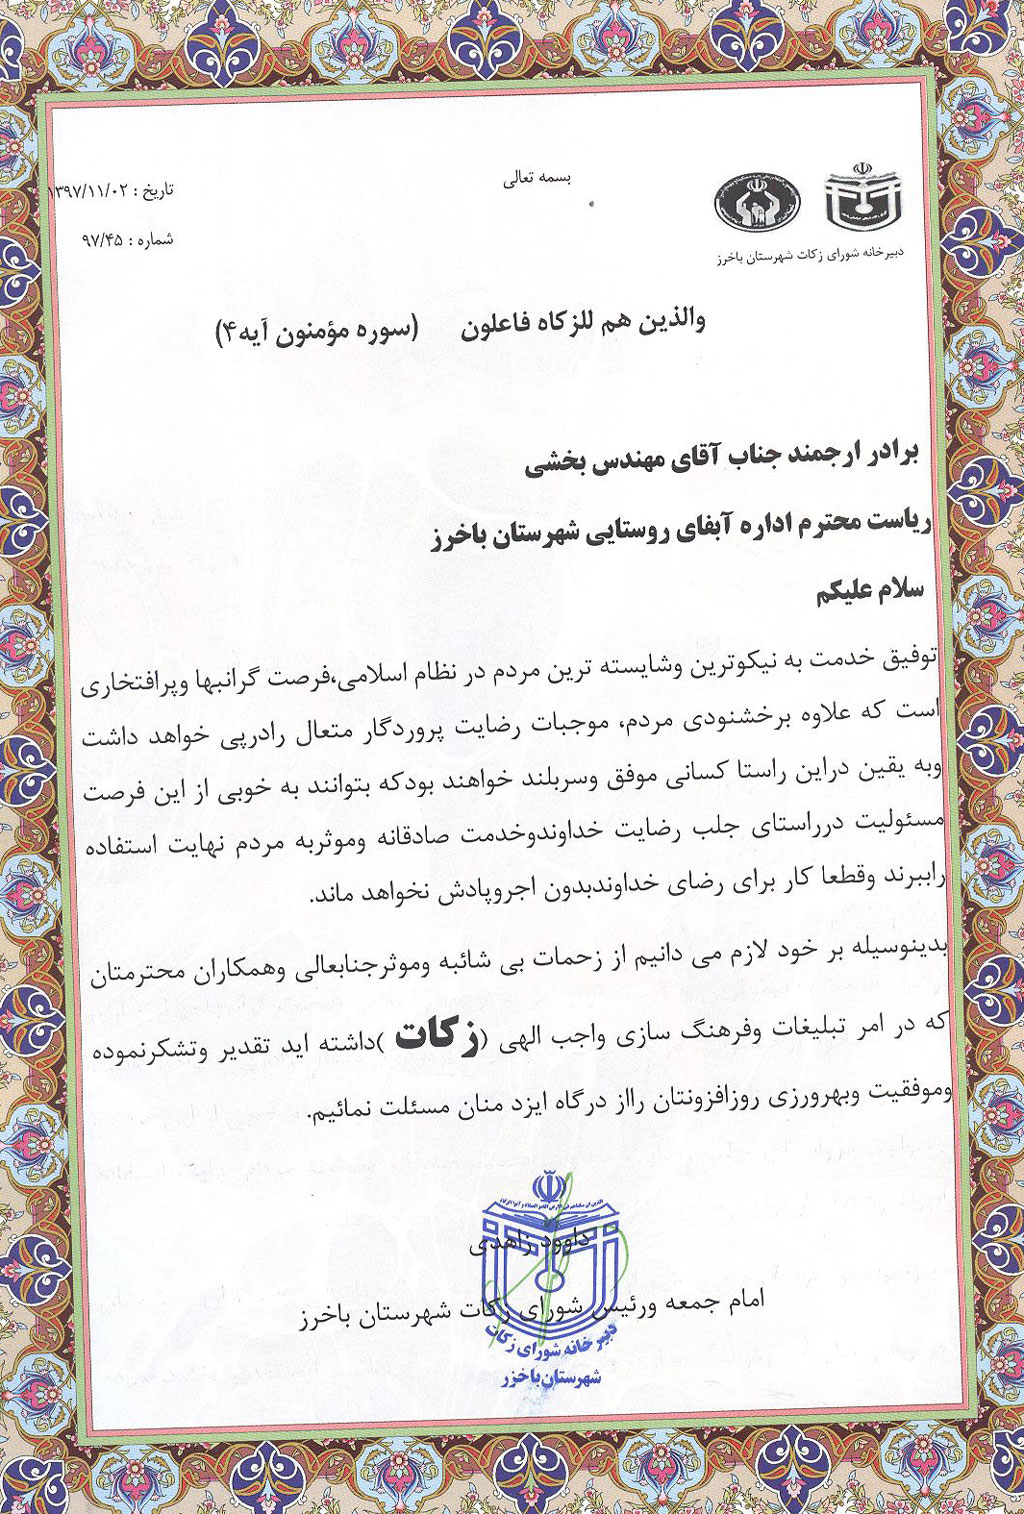 بسمه تعالی
تاریخ : ۱۳۹۷/۱۱/۰۲
شماره : ۹۷/۴۵
دبیرخانه شورای زکات شهرستان باخرز
والذین هم للزکاه فاعلون (سوره مؤمنون آیه۴)
برادر ارجمند جناب آقای مهندس بخشی
ریاست محترم اداره آبفای روستایی شهرستان باخرز
سلام علیکم
توفیق خدمت به نیکوترین وشایسته ترین مردم در نظام اسلامی،فرصت گرانبها وپرافتخاری
است که علاوه برخشنودی مردم، موجبات رضایت پروردگار متعال رادرپی خواهد داشت
وبه یقین دراین راستا کسانی موفق وسربلند خواهند بودکه بتوانند به خوبی از این فرصت
مسئولیت درراستای جلب رضایت خداوندوخدمت صادقانه وموثربه مردم نهایت استفاده
راببرند وقطعا کار برای رضای خداوندبدون اجروپادش نخواهد ماند.
بدینوسیله بر خود لازم می دانیم از زحمات بی شائبه وموثرجنابعالی وهمکاران محترمتان
که در امر تبلیغات وفرهنگ سازی واجب الهی (زکات )داشته اید تقدیر وتشکرنموده
وموفقیت وبهرورزی روزافزونتان رااز درگاه ایزد منان مسئلت نمائیم.
داوود زاهدی
امام جمعه ورئیس شورای زکات شهرستان باخرز
دبیرخانه شورای زکات
شهرستان باخزر